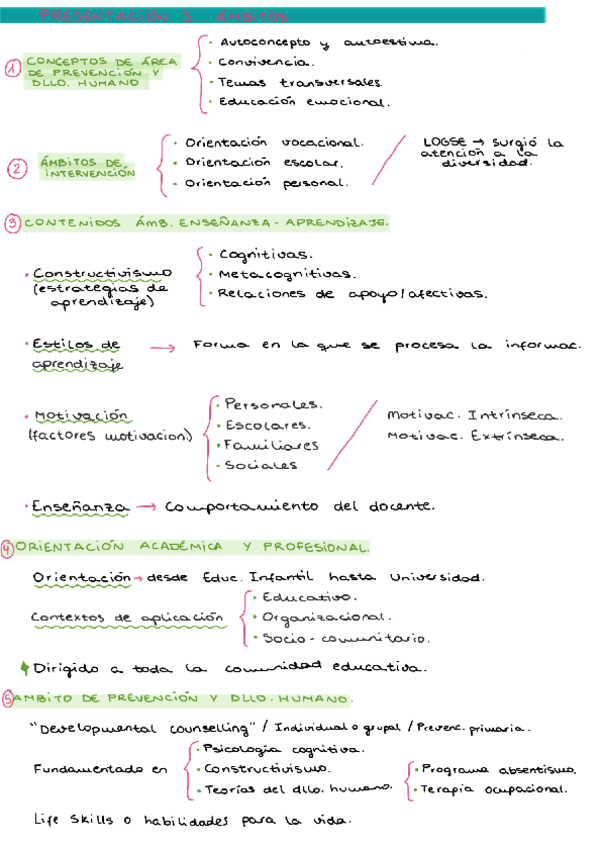 PRESENTACIÓN 3 : ÁMBITOS
① CONCEPTOS DE ÁREA
DE PREVENCIÓN Y
DLLO. HUMANO
· Autoconcepto y autoestima.
· Convivencia.
· Temas transversales.
· Educación emocional.
② ÁMBITOS DE
INTERVENCIÓN
· Orientación vocacional.
· Orientación escolar.
· Orientación personal.
LOGSE → surgió la
atención a la
diversidad.
③ CONTENIDOS ÁMB. ENSEÑANZA - APRENDIZAJE.
· Constructivismo
(estrategias de
aprendizaje)
· Cognitivas.
· Metacognitivas.
· Relaciones de apoyo/afectivas.
· Estilos de
aprendizaje
→ Forma en la que se procesa la informac.
· Motivación
(factores motivacion)
· Personales.
· Escolares.
· Familiares
· Sociales
Motivac. Intrínseca.
Motivac. Extrínseca.
· Enseñanza → Comportamiento del docente.
④ ORIENTACIÓN ACADÉMICA Y PROFESIONAL.
Orientación → desde Educ. Infantil hasta Universidad.
Contextos de aplicación
· Educativo.
· Organizacional.
· Socio - comunitario.
Dirigido a toda la comunidad educativa.
⑤ ÁMBITO DE PREVENCIÓN Y DLLO. HUMANO.
"Developmental counselling" / Individual o grupal / Prevenc. primaria.
Fundamentado en
· Psicología cognitiva.
· Constructivismo.
· Teorías del dllo. humano.
· Programa absentismo.
· Terapia ocupacional.
Life Skills o habilidades para la vida.